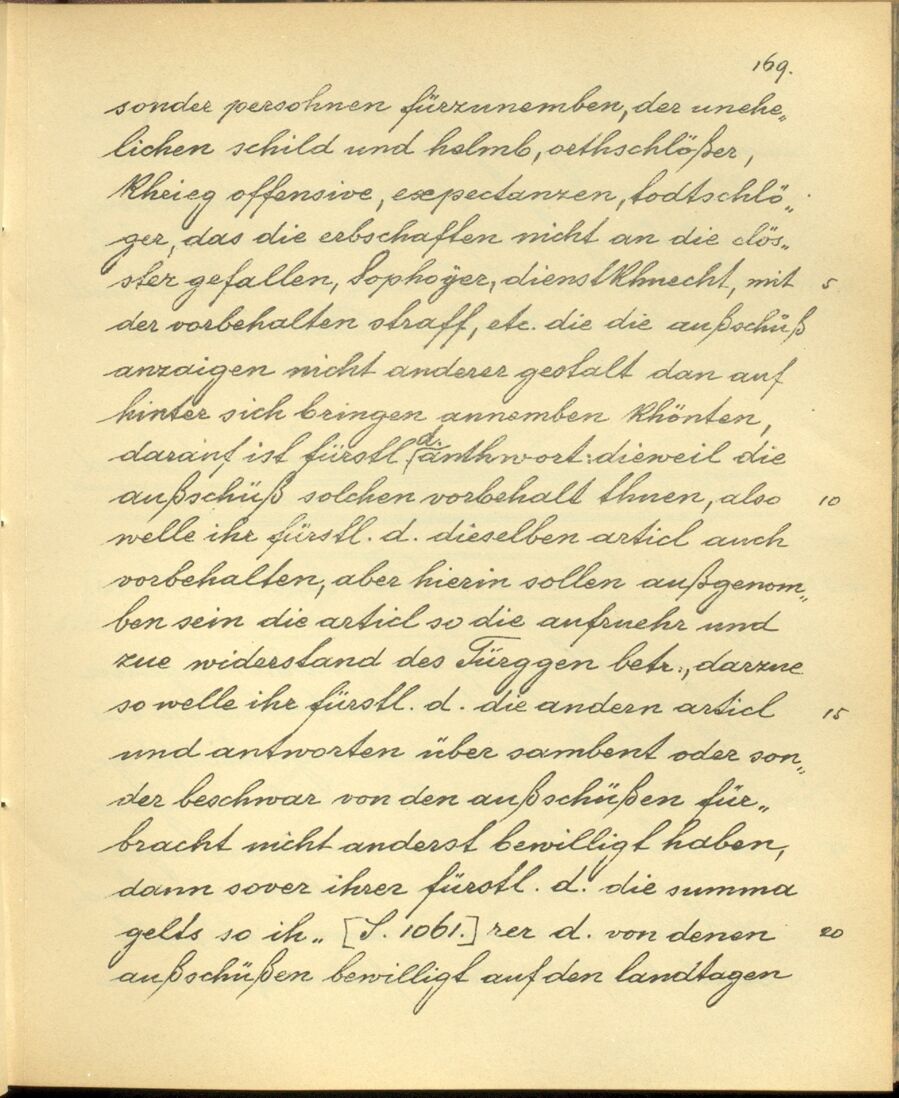 169.
sonder persohnen fürzunemben, der unehe„
lichen schild und helmb, orthschlößer,
Khrieg offensive, expectanzen, todtschlö„
ger, das die erbschaften nicht an die clös„
ster gefallen, Sophoÿer, dienstKhnecht, mit 5
der vorbehalten straff, etc. die die außschüß
anzaigen nicht anderer gestalt dan auf
hinter sich bringen annemben Khönten,
darauf ist fürstl. d. anthwort: dieweil die
außschüß solchen vorbehalt thuen, also 10
welle ihr fürstl. d. dieselben articl auch
vorbehalten, aber hierin sollen außgenom„
ben sein die articl so die aufruehr und
zue widerstand des Türggen betr:, darzue
so welle ihr fürstl. d. die andern articl 15
und antworten über sambent oder son„
der beschwar von den außschüßen für„
bracht nicht anderst bewilligt haben,
dann sover ihrer fürstl. d. die summa
gelts so ih„ [S. 1061.] rer d. von denen 20
außschüßen bewilligt auf den landtagen